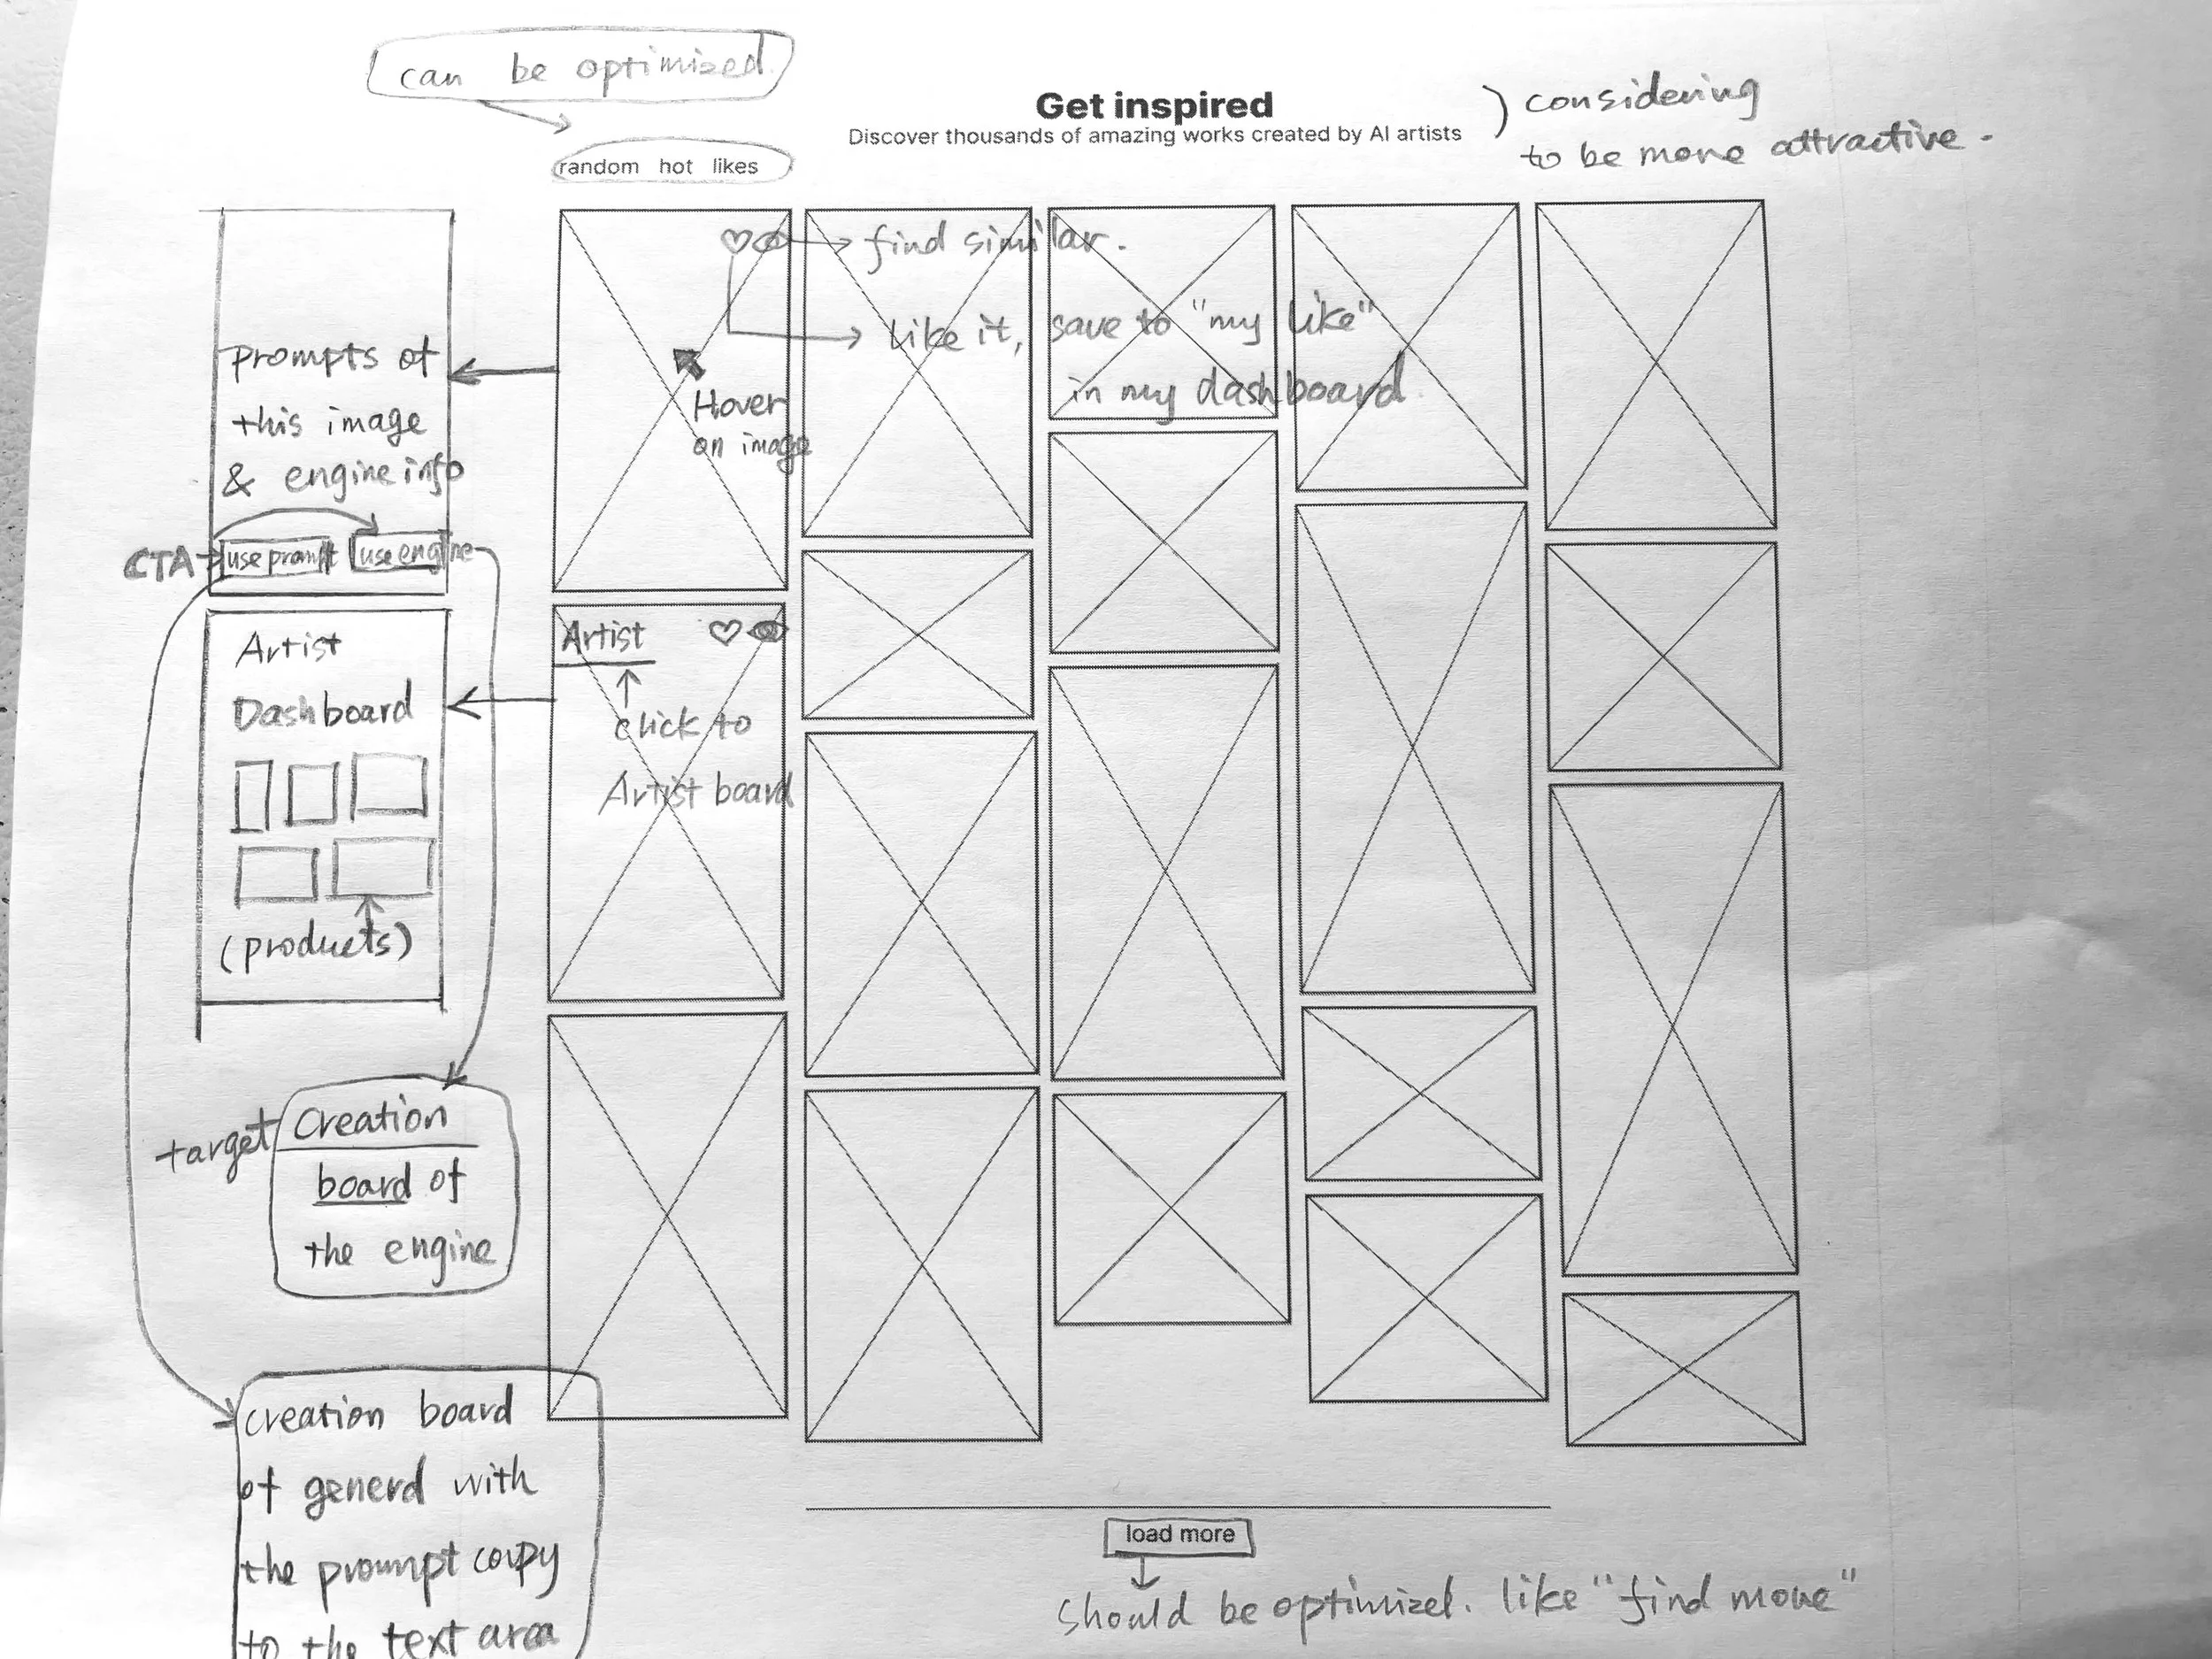 can be optimized.
Get inspired
Discover thousands of amazing works created by AI artists
considering
to be more attractive.
random hot likes
find similar.
like it, save to "my like"
in my dashboard
Hover
on image
prompts of
this image
& engine info
CTA
use prompt
use engine
Artist
click to
Artist board
Artist
Dashboard
(products)
target
Creation
board of
the engine
creation board
of generd with
the prompt copy
to the text area
load more
should be optimized. like "find more"